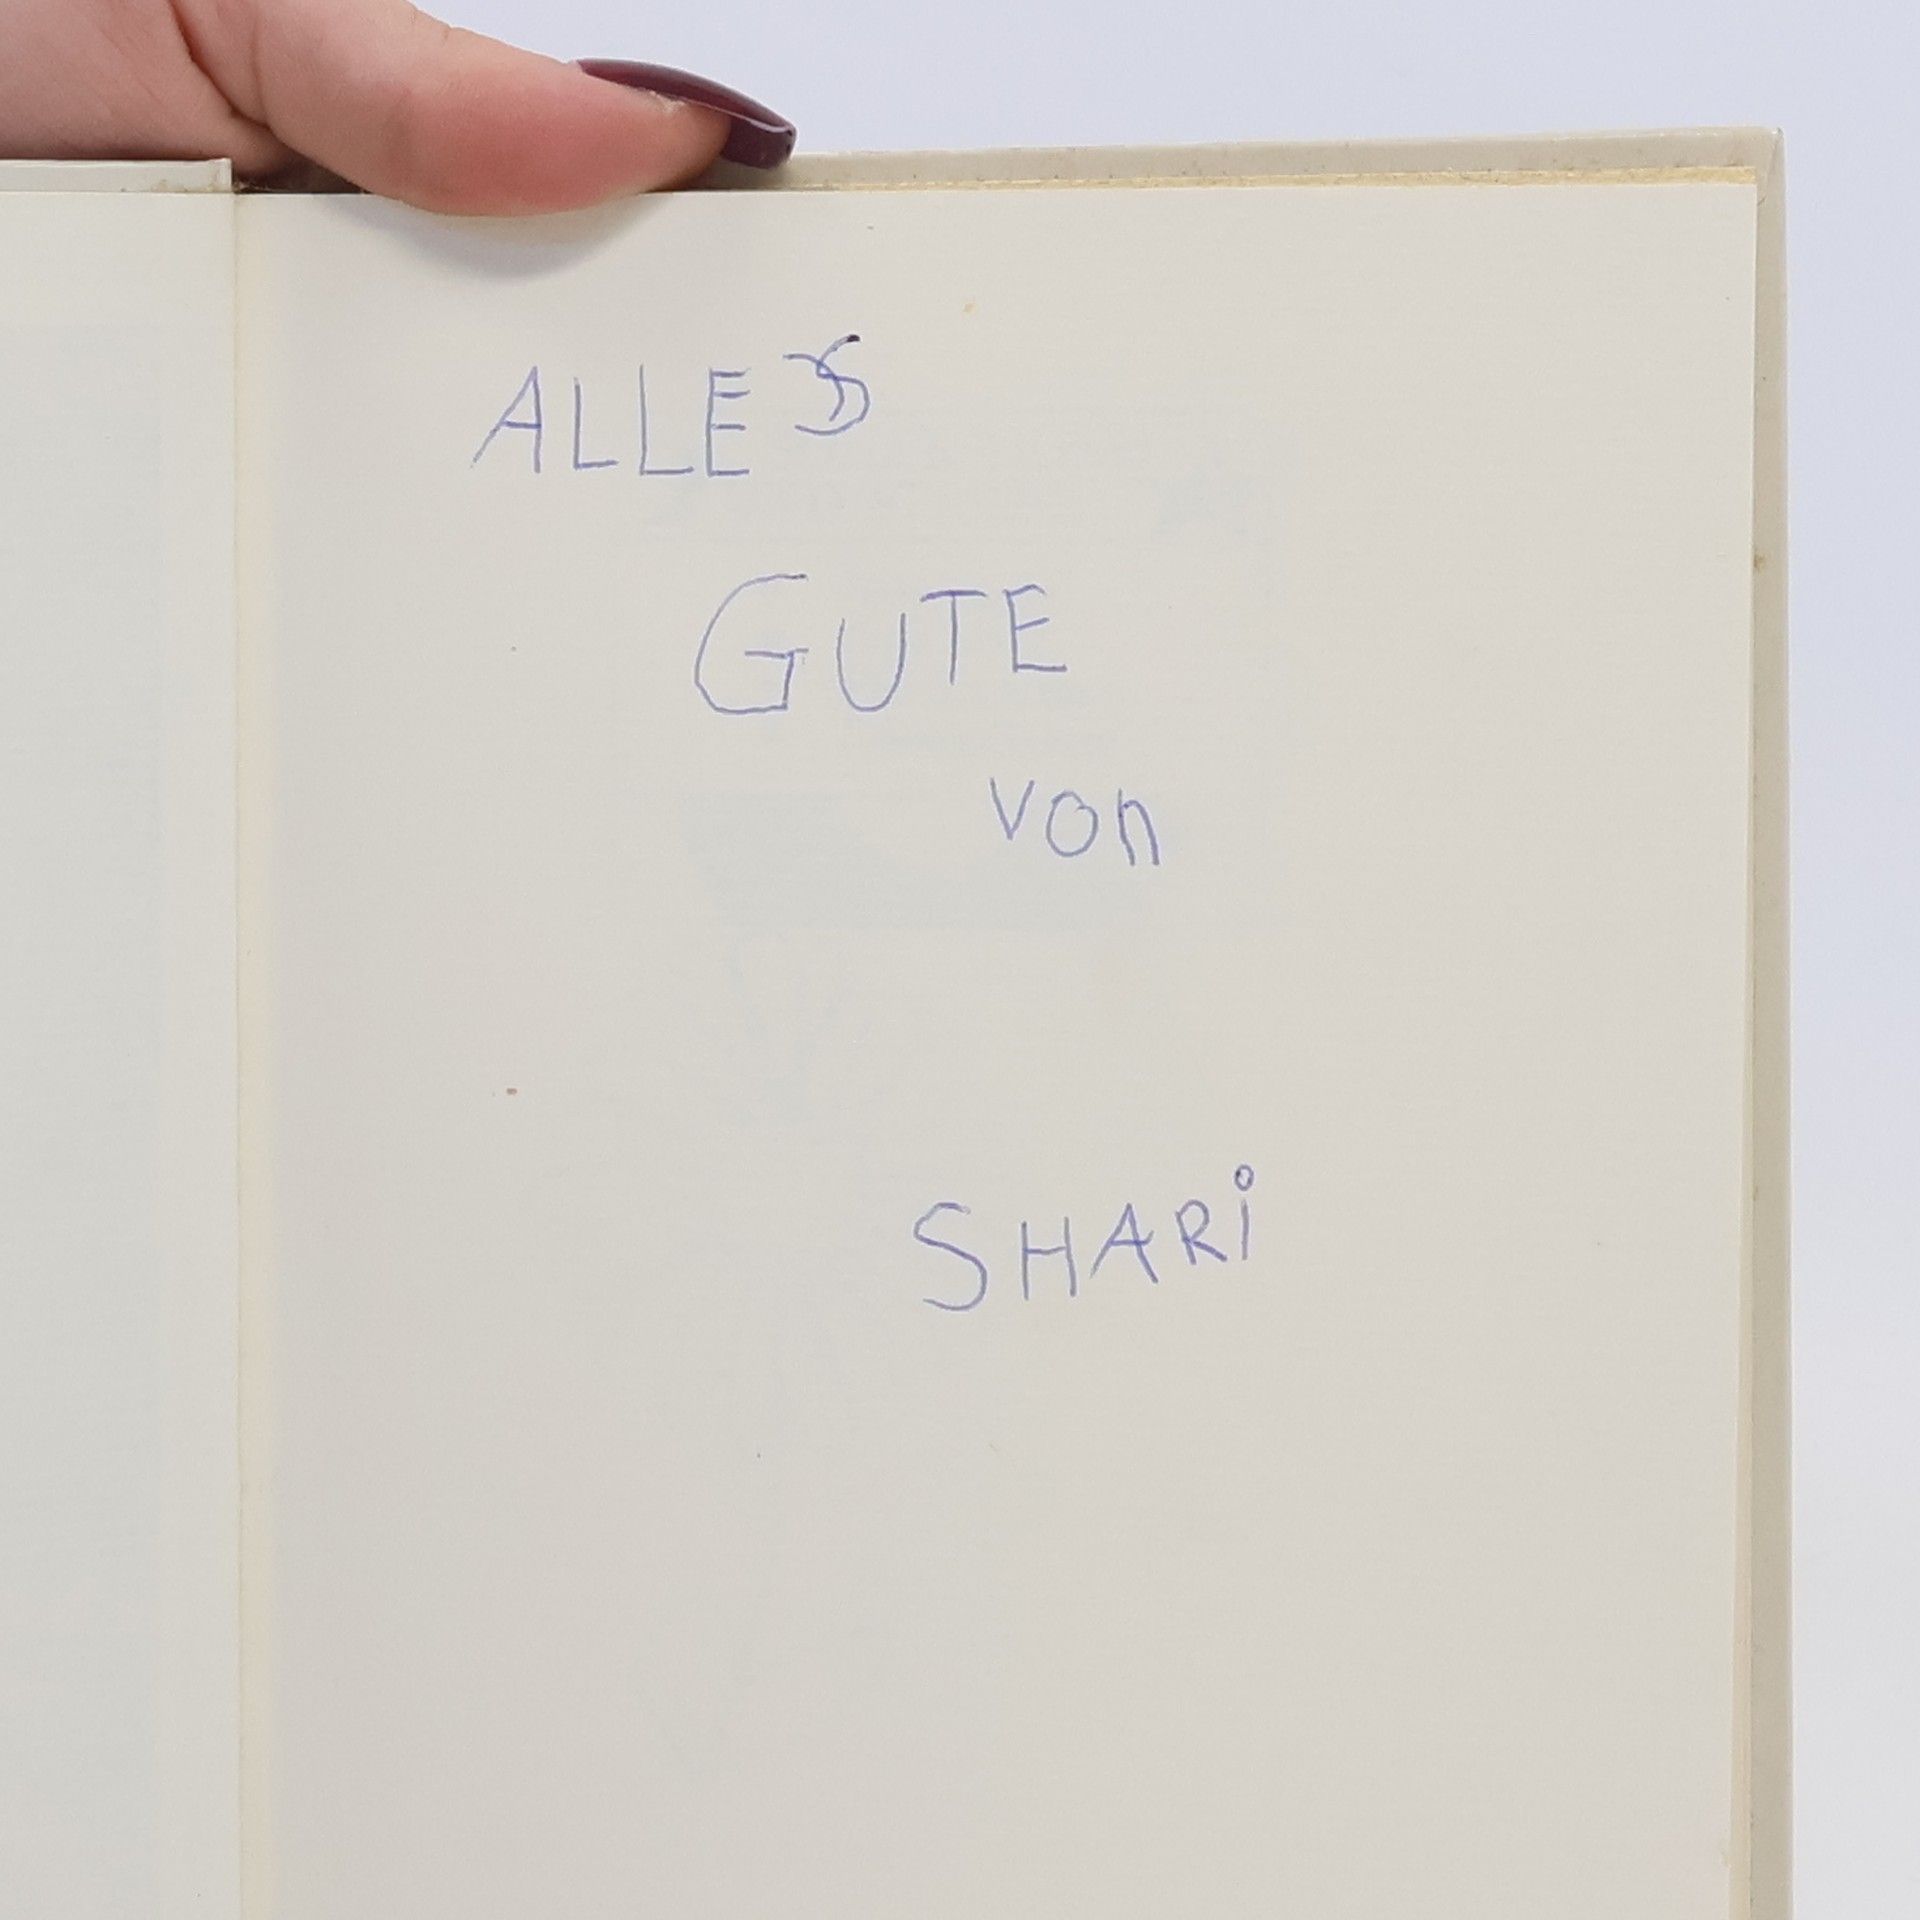 ALLES
GUTE
von
SHARi